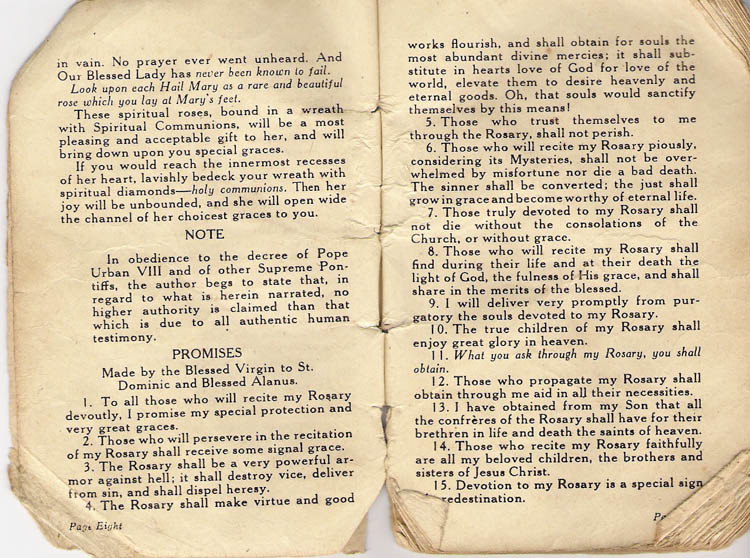 in vain. No prayer ever went unheard. And
Our Blessed Lady has never been known to fail.
Look upon each Hail Mary as a rare and beautiful
rose which you lay at Mary's feet.
These spiritual roses, bound in a wreath
with Spiritual Communions, will be a most
pleasing and acceptable gift to her, and will
bring down upon you special graces.
If you would reach the innermost recesses
of her heart, lavishly bedeck your wreath with
spiritual diamonds—holy communions. Then her
joy will be unbounded, and she will open wide
the channel of her choicest graces to you.
NOTE
In obedience to the decree of Pope
Urban VIII and of other Supreme Pon-
tiffs, the author begs to state that, in
regard to what is herein narrated, no
higher authority is claimed than that
which is due to all authentic human
testimony.
PROMISES
Made by the Blessed Virgin to St.
Dominic and Blessed Alanus.
1. To all those who will recite my Rosary
devoutly, I promise my special protection and
very great graces.
2. Those who will persevere in the recitation
of my Rosary shall receive some signal grace.
3. The Rosary shall be a very powerful ar-
mor against hell; it shall destroy vice, deliver
from sin, and shall dispel heresy.
4. The Rosary shall make virtue and good
Page Eight
works flourish, and shall obtain for souls the
most abundant divine mercies; it shall sub-
stitute in hearts love of God for love of the
world, elevate them to desire heavenly and
eternal goods. Oh, that souls would sanctify
themselves by this means!
5. Those who trust themselves to me
through the Rosary, shall not perish.
6. Those who will recite my Rosary piously,
considering its Mysteries, shall not be over-
whelmed by misfortune nor die a bad death.
The sinner shall be converted; the just shall
grow in grace and become worthy of eternal life.
7. Those truly devoted to my Rosary shall
not die without the consolations of the
Church, or without grace.
8. Those who will recite my Rosary shall
find during their life and at their death the
light of God, the fulness of His grace, and shall
share in the merits of the blessed.
9. I will deliver very promptly from pur-
gatory the souls devoted to my Rosary.
10. The true children of my Rosary shall
enjoy great glory in heaven.
11. What you ask through my Rosary, you shall
obtain.
12. Those who propagate my Rosary shall
obtain through me aid in all their necessities.
13. I have obtained from my Son that all
the confrères of the Rosary shall have for their
brethren in life and death the saints of heaven.
14. Those who recite my Rosary faithfully
are all my beloved children, the brothers and
sisters of Jesus Christ.
15. Devotion to my Rosary is a special sign
redestination.